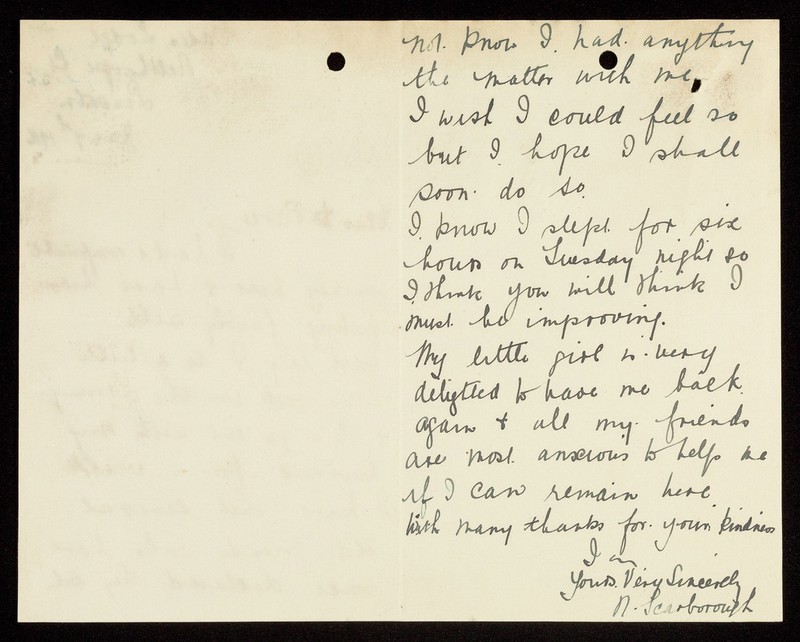 not know I had anything
the matter with me,
I wish I could feel so
but I hope I shall
soon do so.
I know I slept for six
hours on Tuesday night so
I think you will think I
must be improving.
My little girl is very
delighted to have me back
again & all my friends
are most anxious to help me
if I can remain here
With many thanks for your kindness
I am
Yours Very Sincerely
N. Scarborough